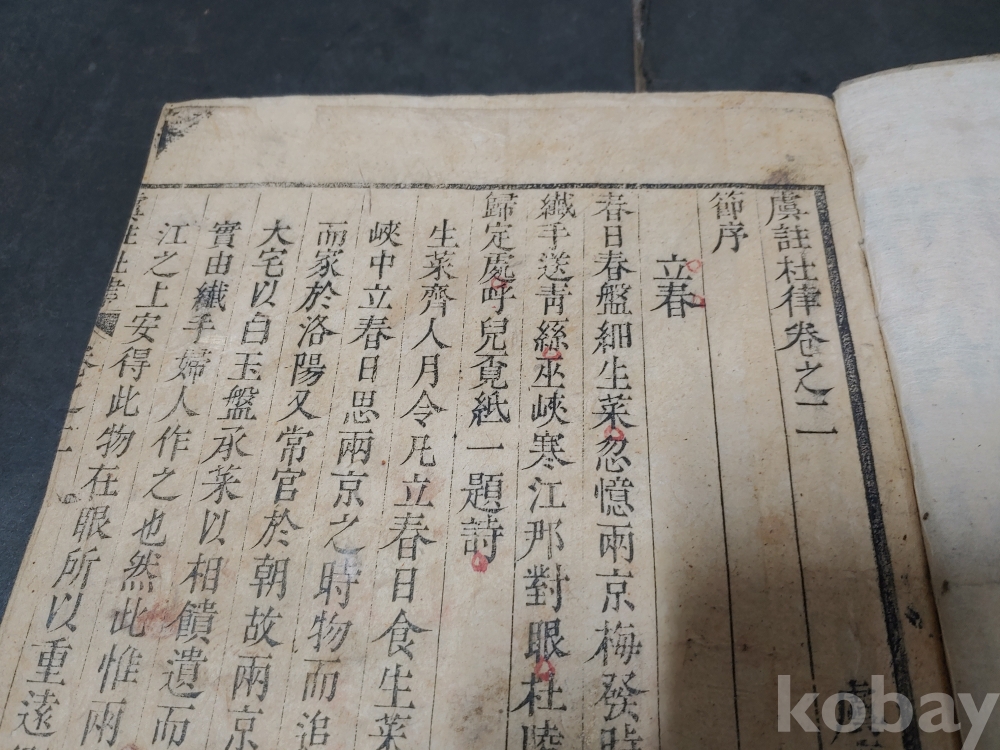 虞註杜律卷之二
節序
立春
春日春盤細生菜忽憶兩京梅發時
纖手送青絲巫峽寒江那對眼杜陵
歸定處呼兒覓紙一題詩
生菜齊人月令凡立春日食生菜
峽中立春日思兩京之時物而追
而家於洛陽又常官於朝故兩京
大宅以白玉盤承菜以相饋遺而
實由纖手婦人作之也然此惟兩
江之上安得此物在眼所以重遠
kobay